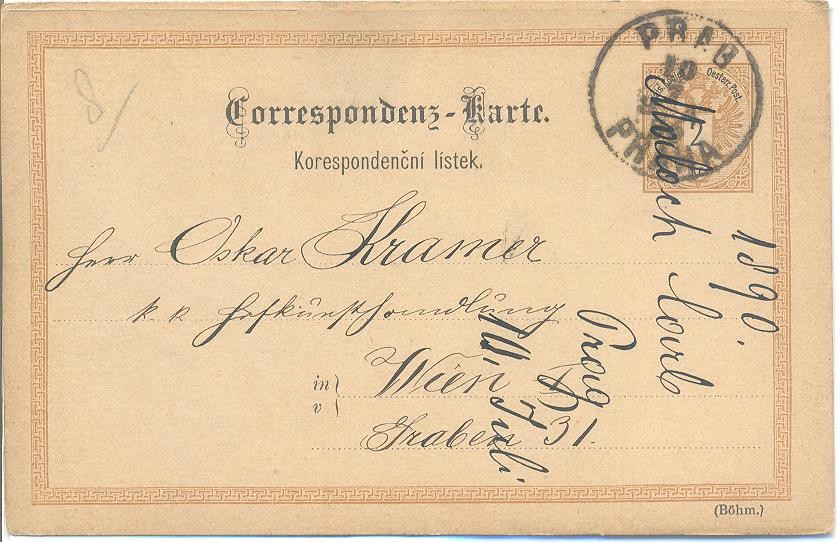 8/
PRAG
10
7
PRAHA
Kais. Königl. Oesterr. Post.
2
Correspondenz-Karte.
Korespondenční lístek.
Herr Oskar Kramer
k. k. Hofkunsthandlung
in Wien
v
Graben 31.
1890.
Prag
10. Juli
(Böhm.)